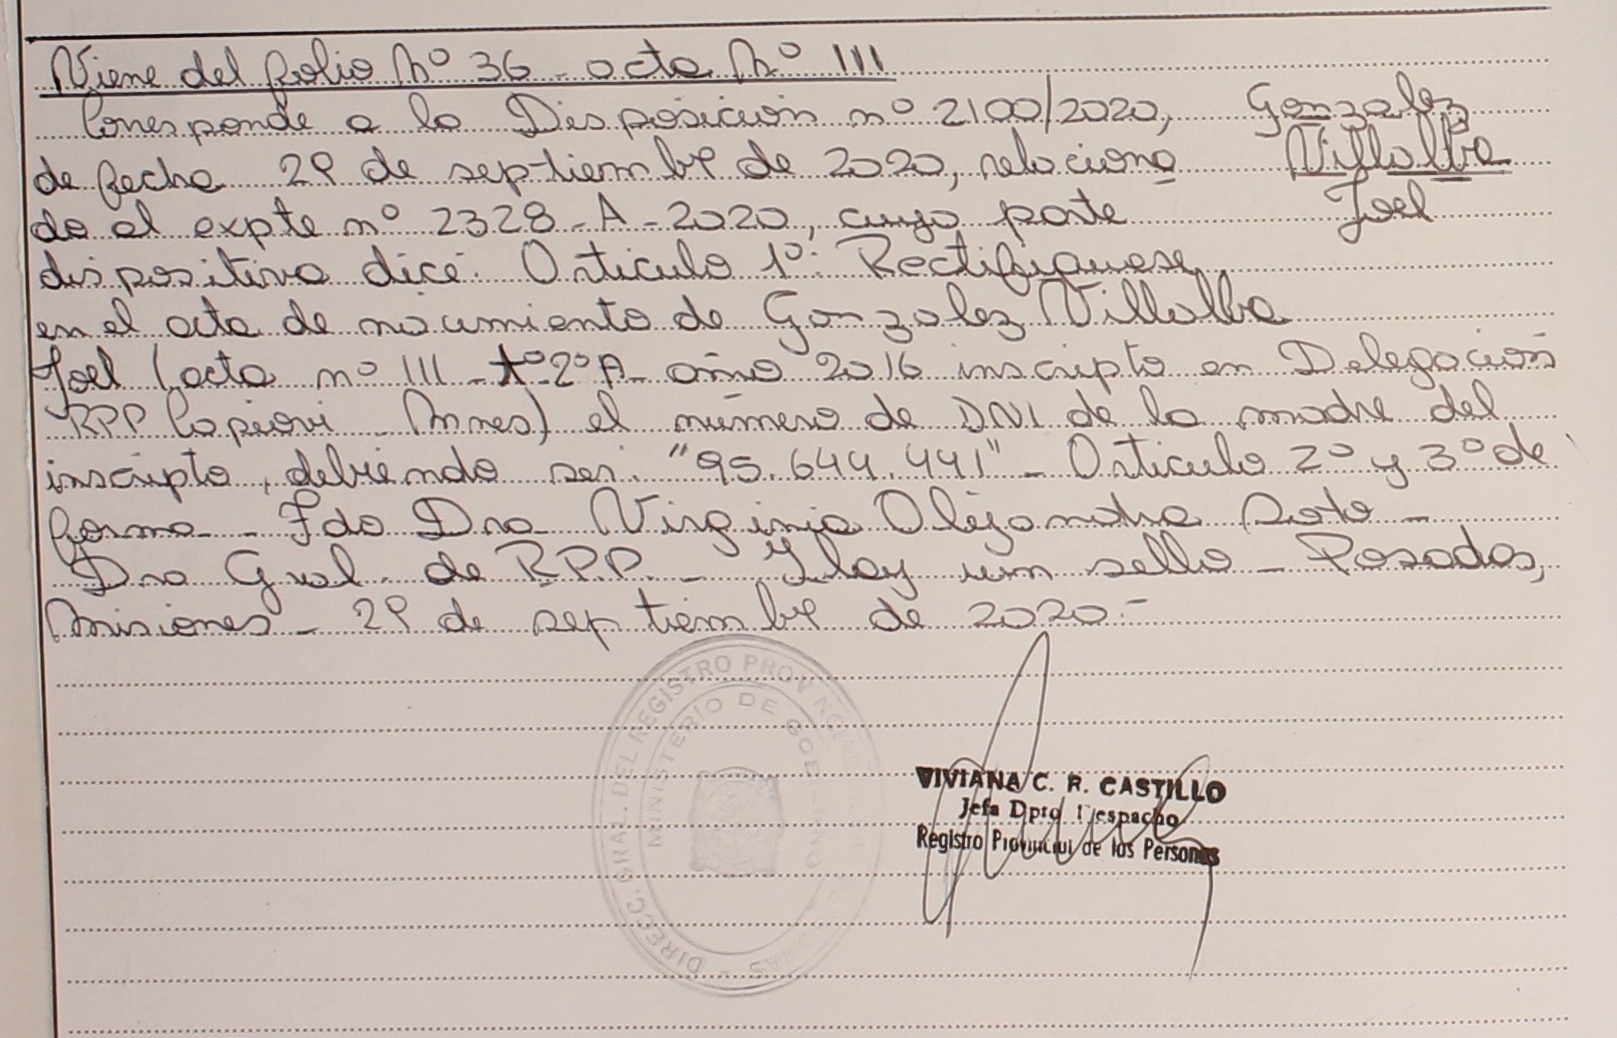 Viene del folio Nº 36 - acta Nº 111
Corresponde a la Disposición nº 2100/2020, Gonzalez
de fecha 29 de septiembre de 2020, relaciona Villalba
do al expte nº 2328-A-2020, cuya parte Joel
dispositiva dice: Articulo 1º: Rectifiquese
en el acta de nacimiento de Gonzalez Villalba
Joel (acta nº 111 - tº 2º A - año 2016 inscripto en Delegación
RPP Capiovi - Mnes) el número de DNI de la madre del
inscripto, debiendo ser: "95.644.441" - Articulo 2º y 3º de
forma - Fdo Dra Virginia Alejandra Soto -
Dra Gral. de R.P.P. - Hay un sello - Posadas,
Misiones - 29 de septiembre de 2020.-
DIRECC. GRAL. DEL REGISTRO PROVINCIAL
MINISTERIO DE GOBIERNO
VIVIANA C. R. CASTILLO
Jefa Dpto Despacho
Registro Provincial de las Personas